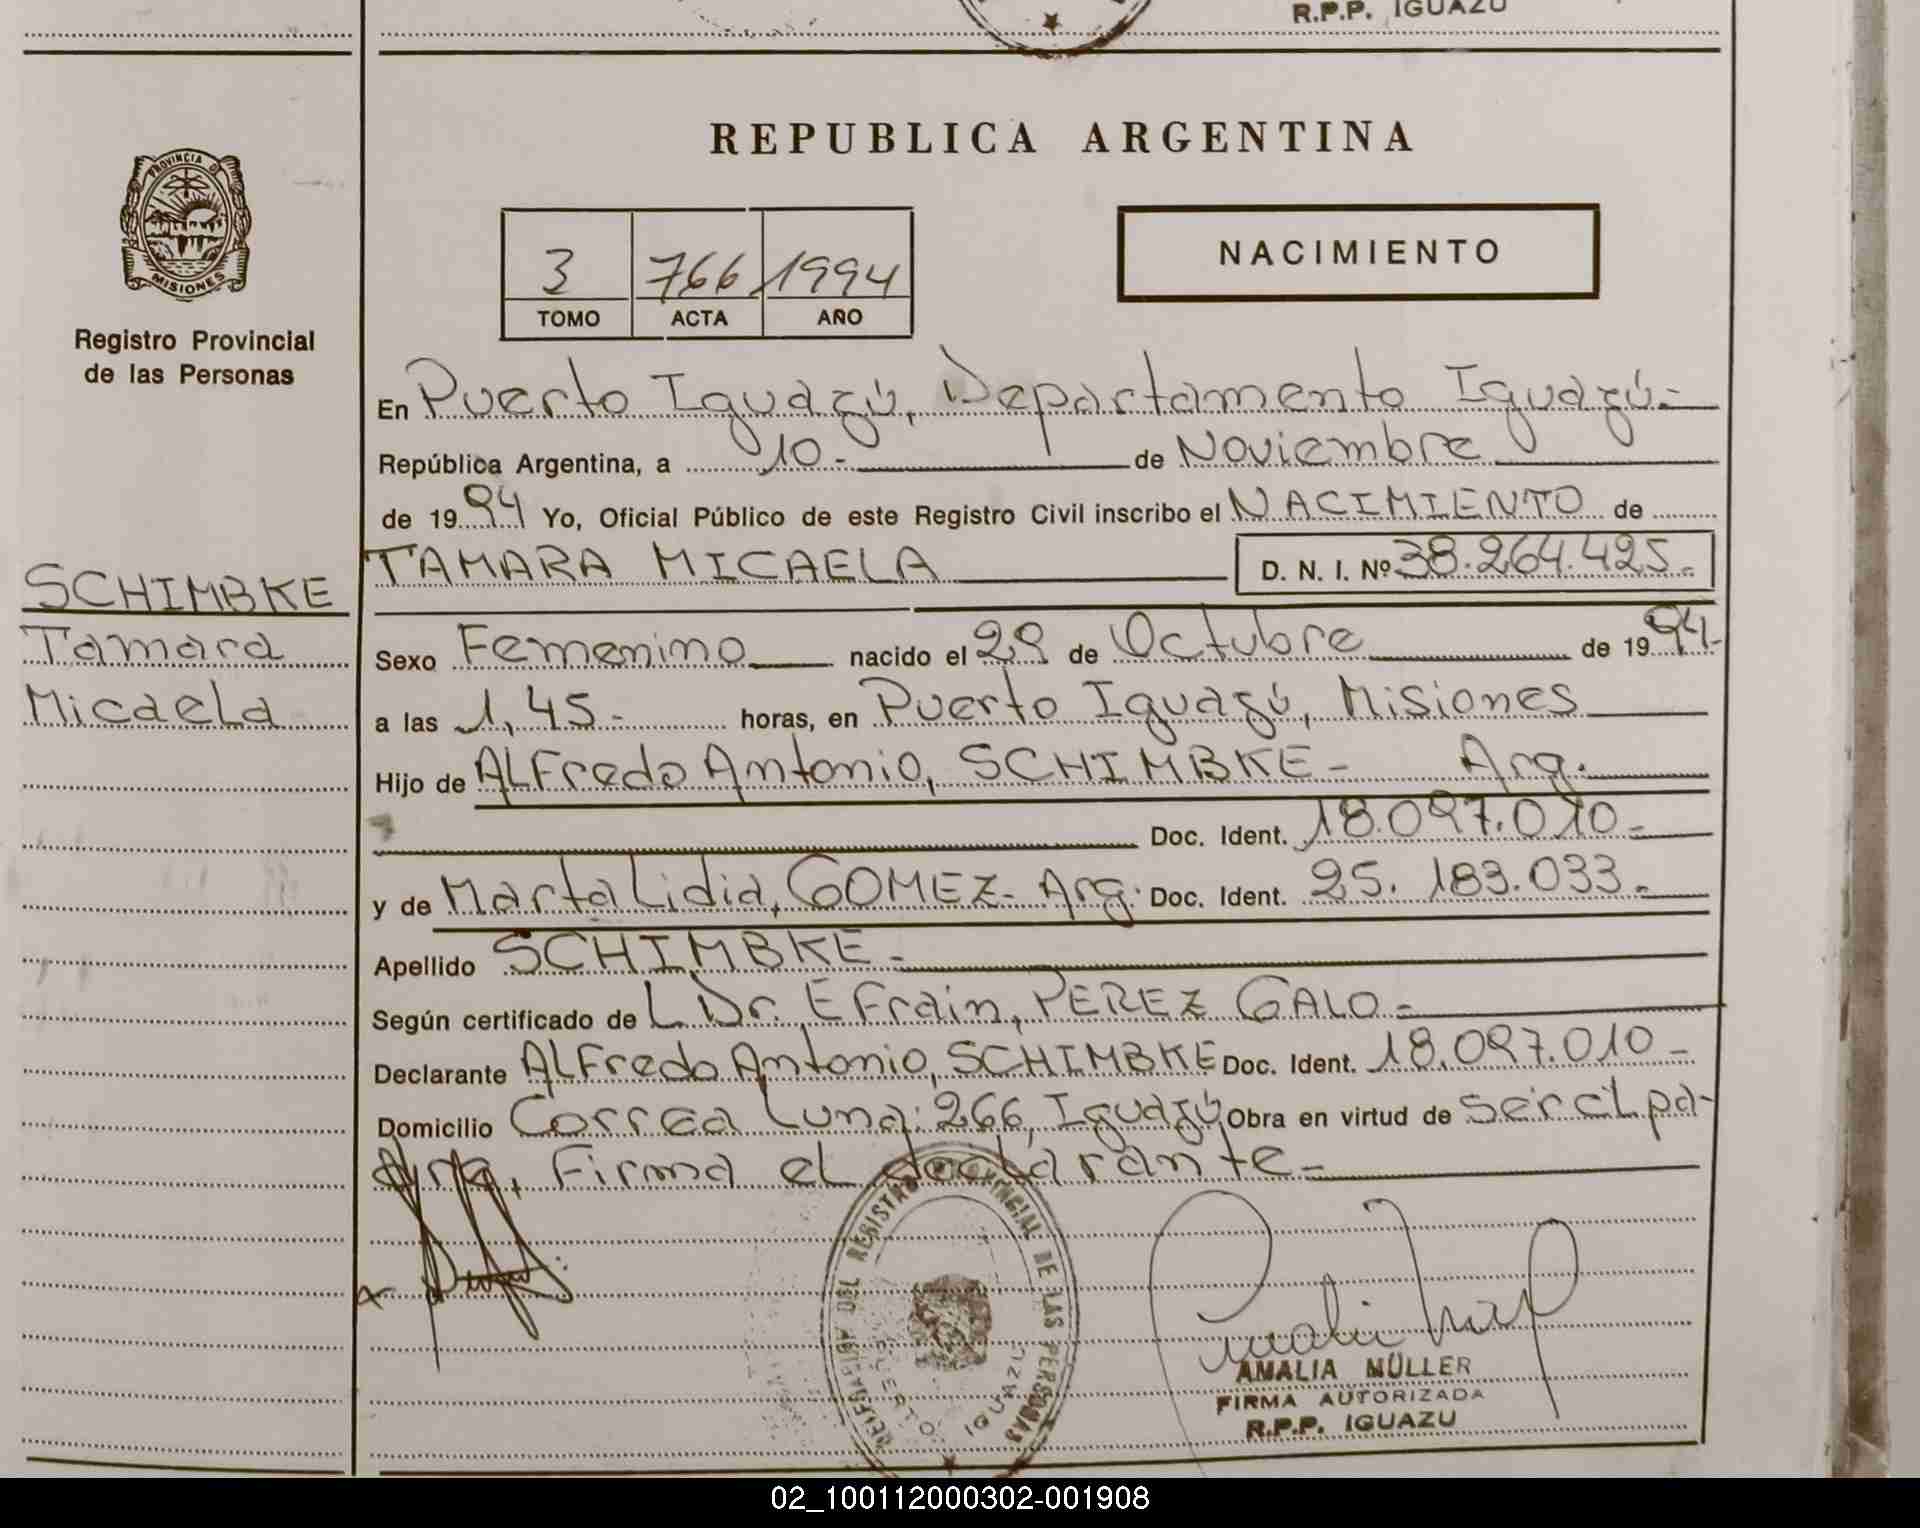 R.P.P. IGUAZU
PROVINCIA D
MISIONES
Registro Provincial
de las Personas
REPUBLICA ARGENTINA
3 766 1994
TOMO ACTA AÑO
NACIMIENTO
En Puerto Iguazú, Departamento Iguazú.-
República Argentina, a 10.- de Noviembre
de 1994 Yo, Oficial Público de este Registro Civil inscribo el NACIMIENTO de
SCHIMBKE
Tamara
Micaela
TAMARA MICAELA D. N. I. Nº 38.264.425.-
Sexo Femenino nacido el 29 de Octubre de 1994-
a las 1,45.- horas, en Puerto Iguazú, Misiones
Hijo de Alfredo Antonio, SCHIMBKE- Arg.
Doc. Ident. 18.097.010-
y de Marta Lidia, GOMEZ- Arg. Doc. Ident. 25.183.033.-
Apellido SCHIMBKE.-
Según certificado de L Dr. Efrain, PEREZ GALO.-
Declarante Alfredo Antonio, SCHIMBKE Doc. Ident. 18.097.010-
Domicilio Correa Luna: 266, Iguazú Obra en virtud de ser el pa-
dre, Firma el declarante.-
REGISTRO PROVINCIAL DE LAS PERSONAS
PUERTO IGUAZU
AMALIA MÜLLER
FIRMA AUTORIZADA
R.P.P. IGUAZU
02_100112000302-001908